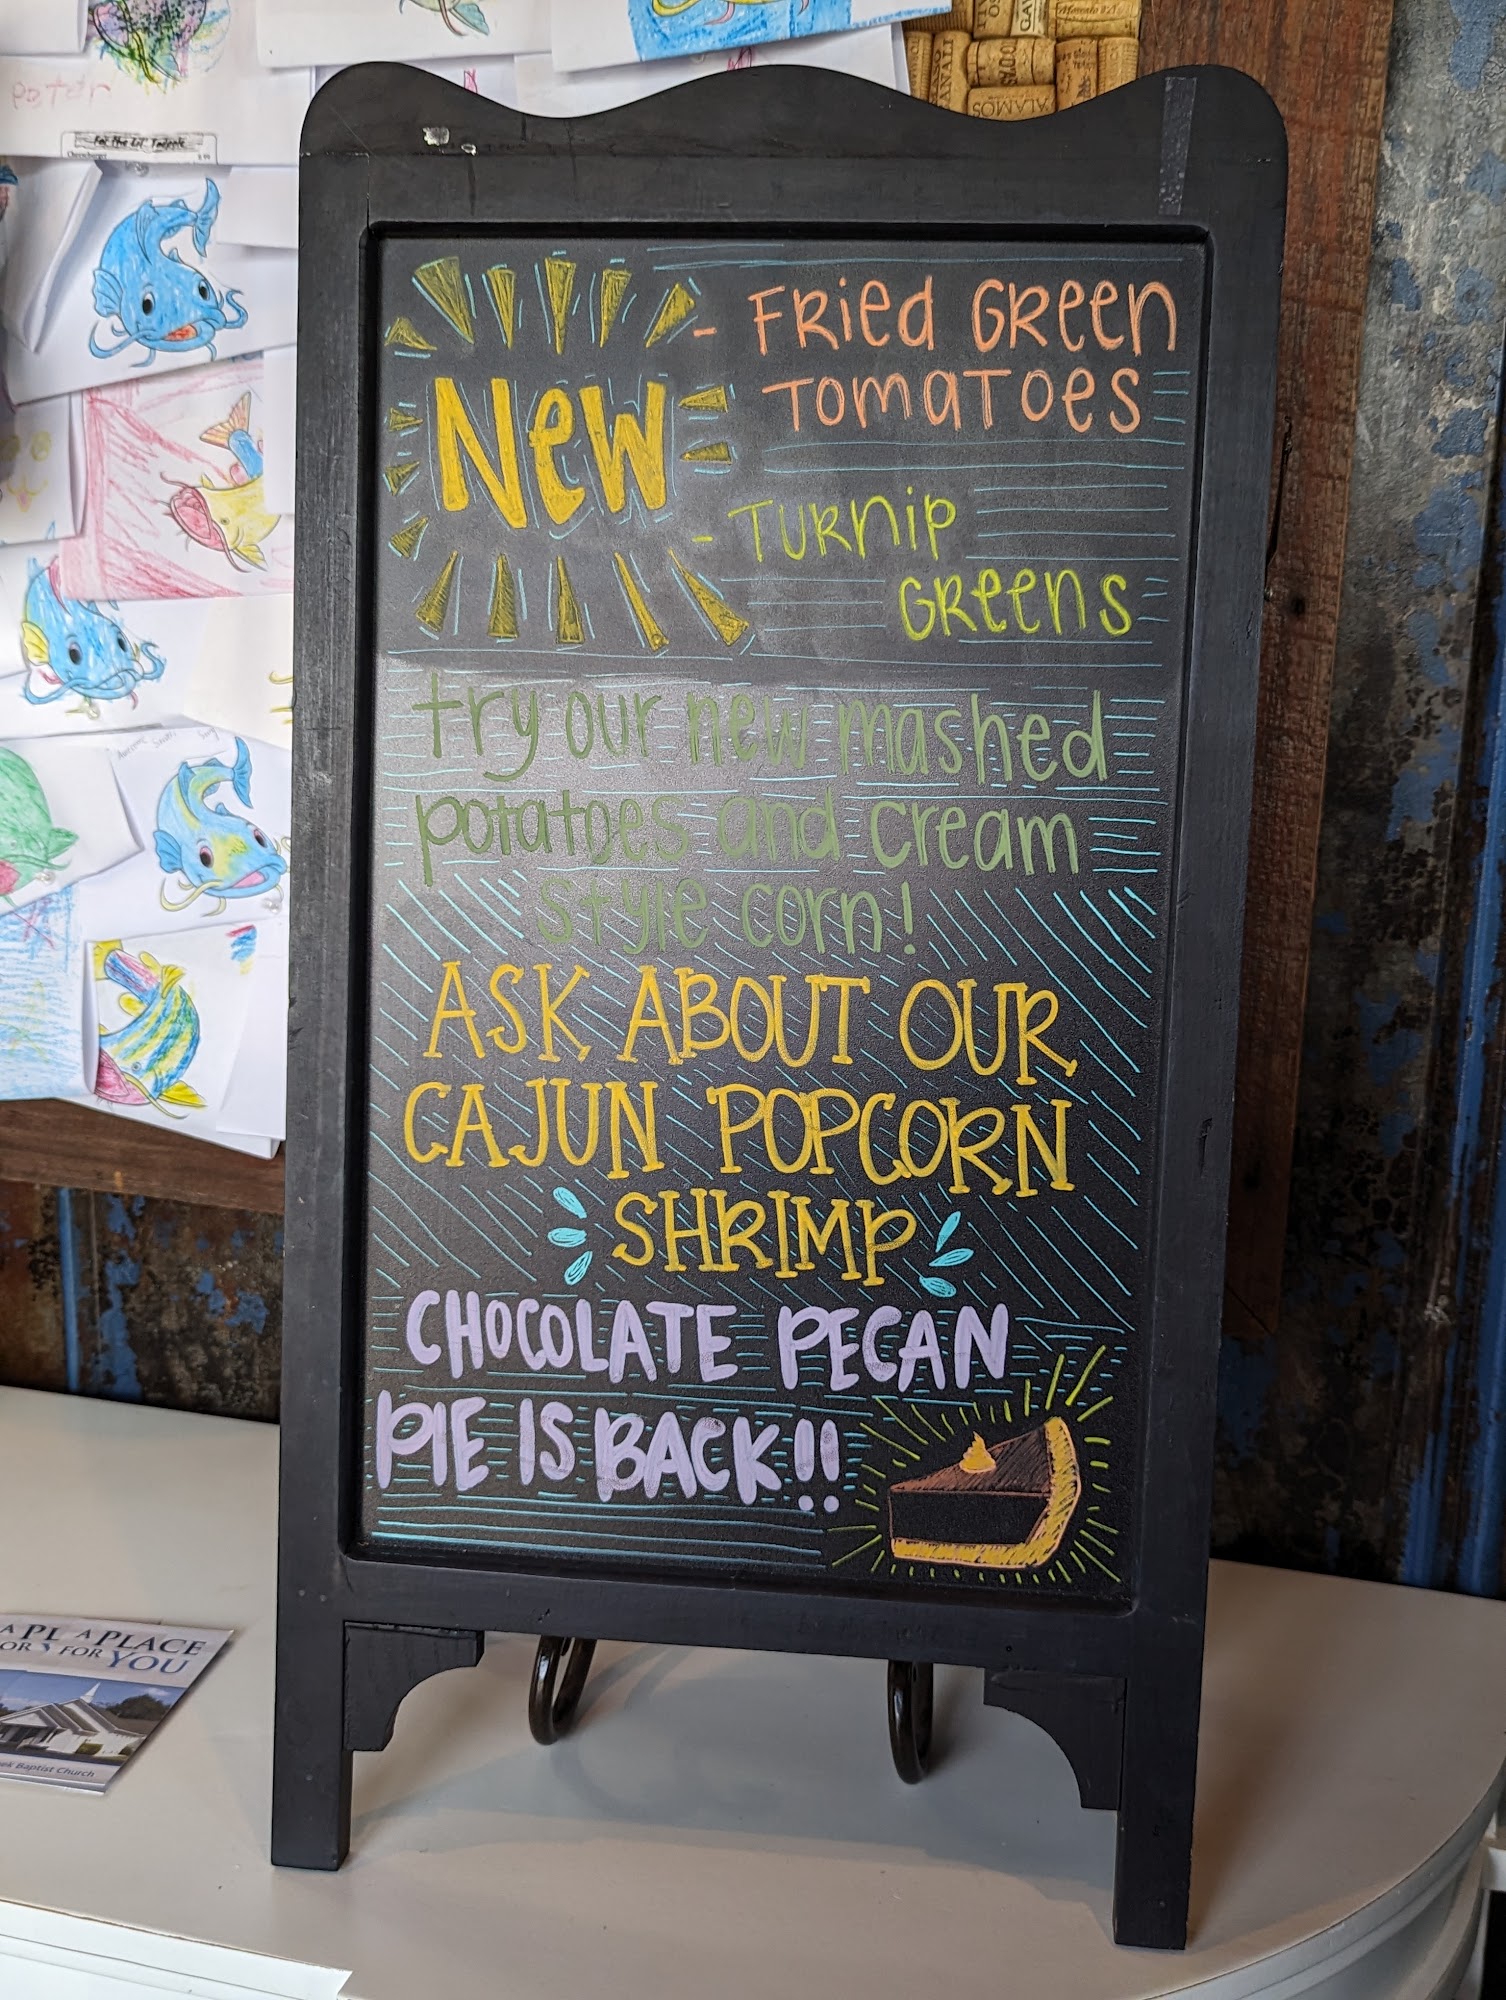 NEW
- FRied GReen
TOMATOES
- TURnip
GReens
try our new mashed
potatoes and cream
style corn!
ASK ABOUT OUR
CAJUN POPCORN
SHRIMP
CHOCOLATE PECAN
PIE IS BACK!!
peter
For the Lil' Tadpole
Cheeseburger
ALAMOS
A PLACE
FOR YOU
Baptist Church